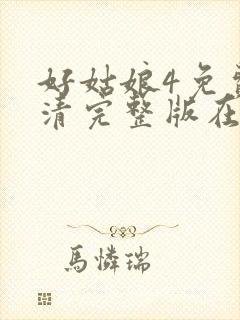 好姑娘4免
清完整版在
馬憐瑞